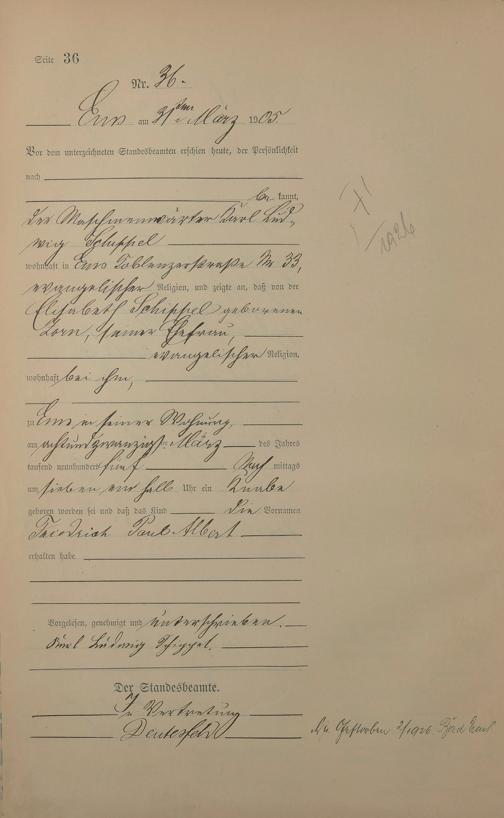 Seite 36
Nr. 36.
Ems am 31ten März 1905.
Vor dem unterzeichneten Standesbeamten erschien heute, der Persönlichkeit
nach
be kannt,
der Maschinenwärter Karl Lud-
wig Schippel
wohnhaft in Ems Coblenzerstraße Nr 33,
evangelischer Religion, und zeigte an, daß von der
Elisabeth Schippel geborenen
Zorn, seiner Ehefrau,
evangelischer Religion,
wohnhaft bei ihm,
zu Ems in seiner Wohnung,
am achtundzwanzigsten März des Jahres
tausend neunhundert fünf Nach mittags
um sieben ein halb Uhr ein Knabe
geboren worden sei und daß das Kind die Vornamen
Friedrich Paul Albert
erhalten habe
Vorgelesen, genehmigt und unterschrieben.
Karl Ludwig Schippel.
Der Standesbeamte.
In Vertretung
1926